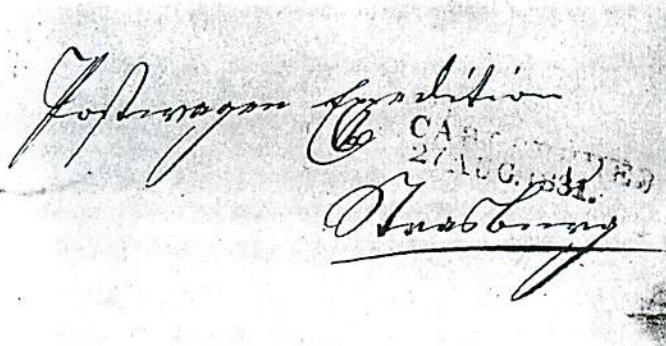 Postwagen Expedition
CARLSRUHE
27 AUG. 1831.
Strasburg